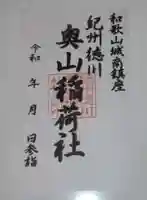 和歌山城南鎮座
紀州徳川
奥山稲荷社
令和 年 月 日参詣